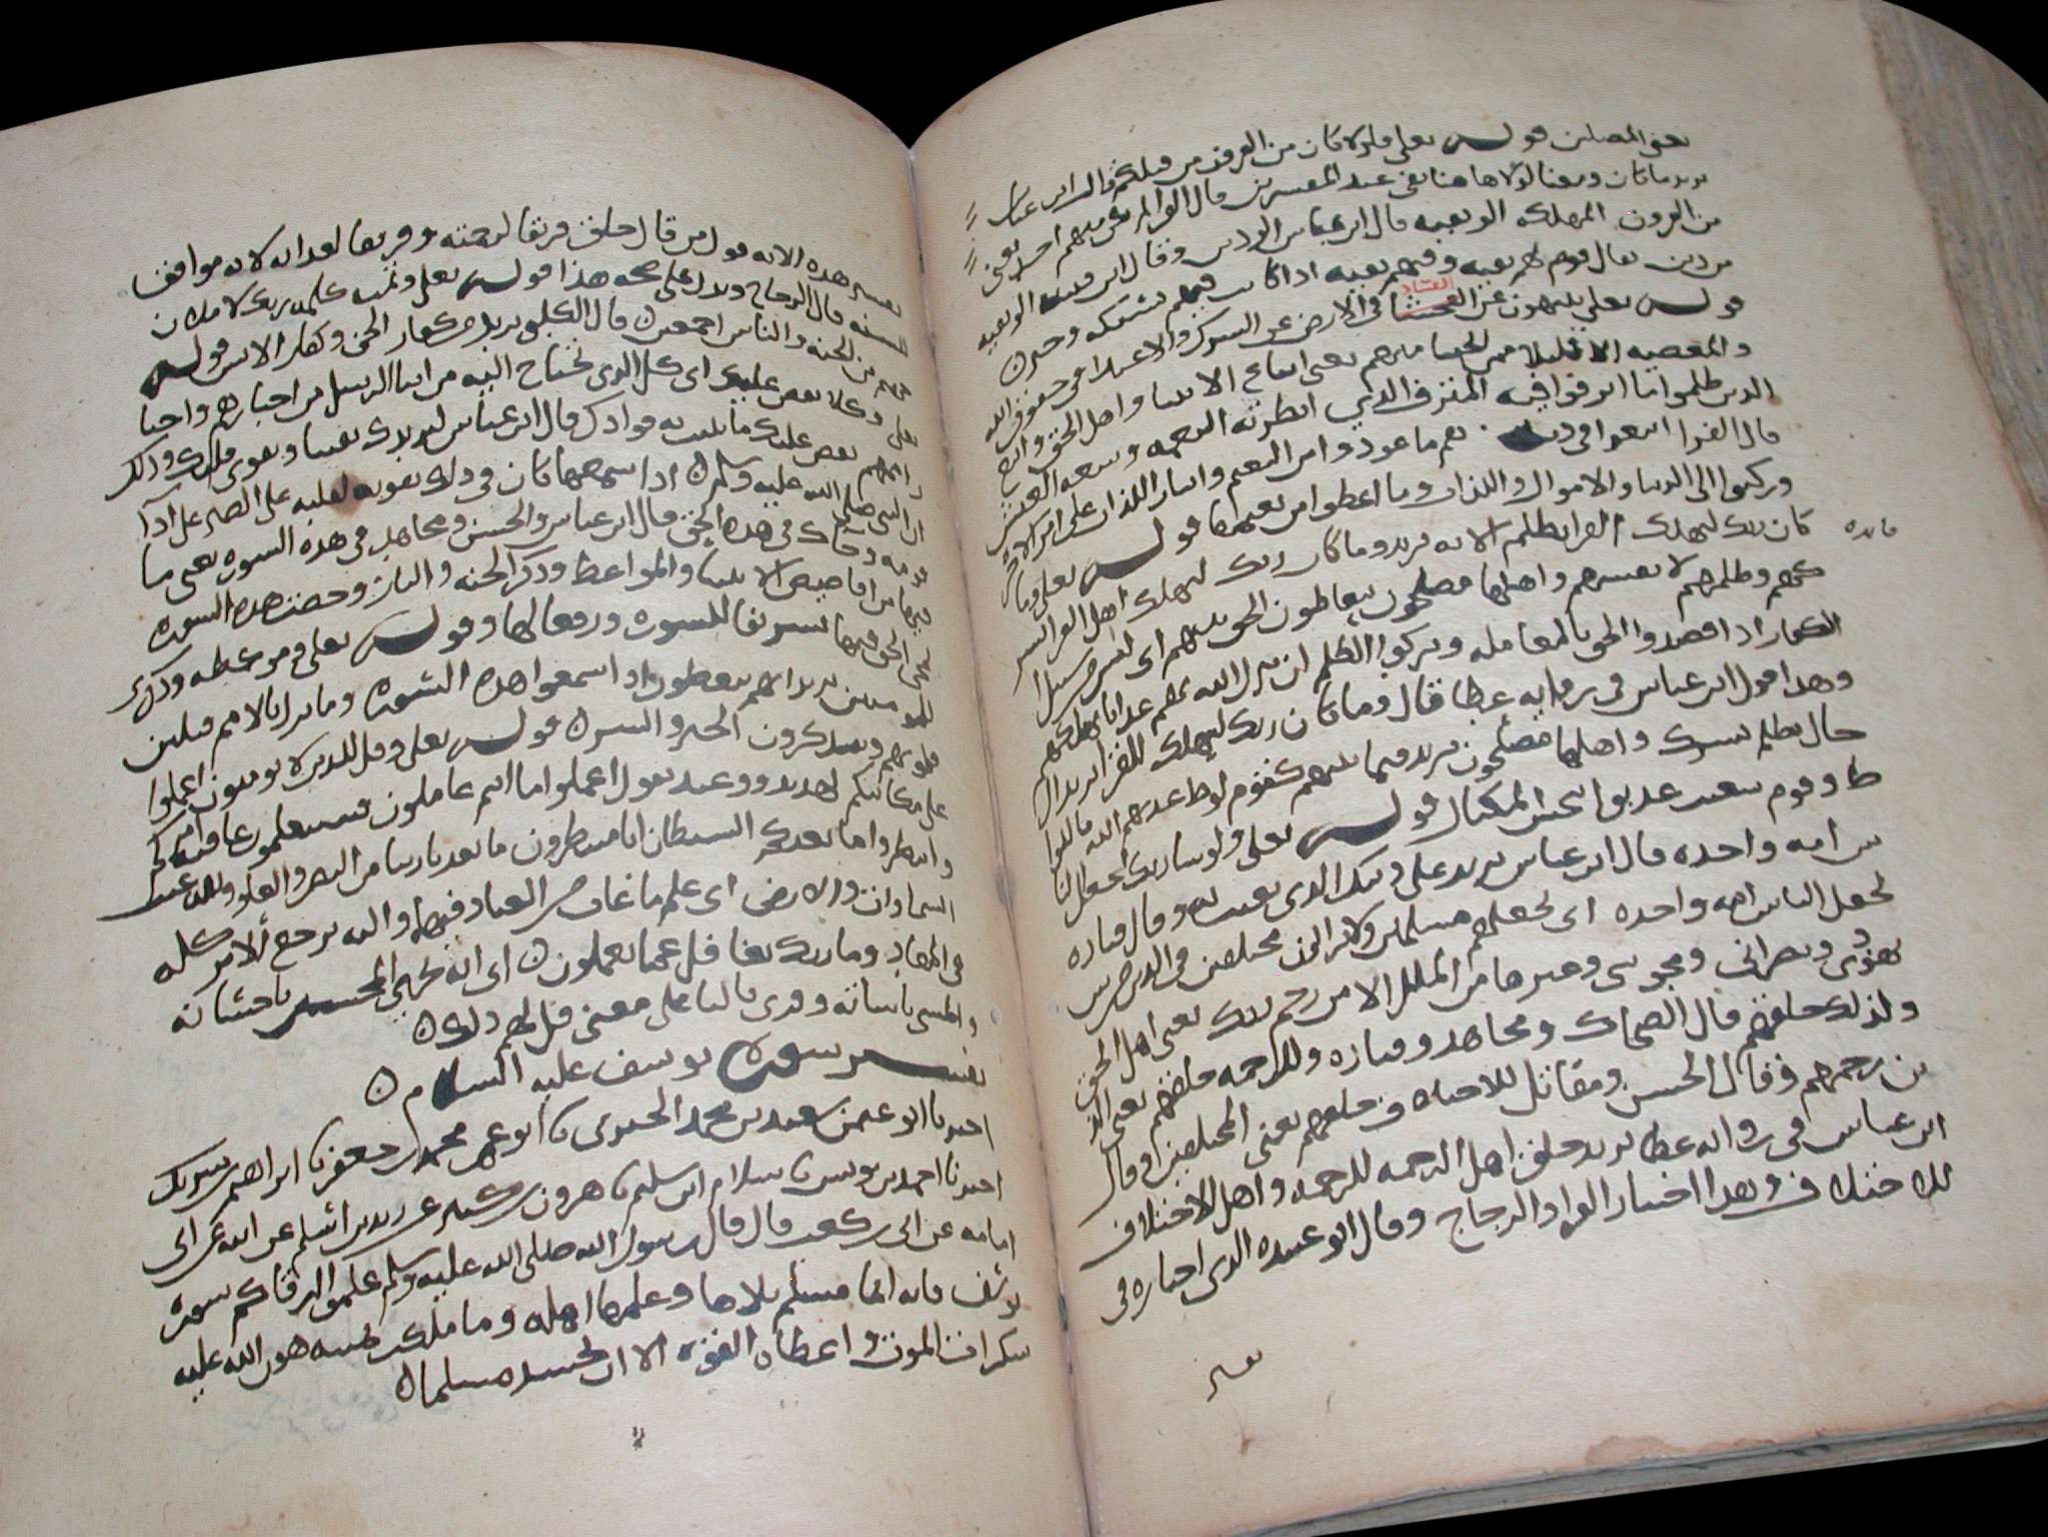 يعنى المصلين قوله تعلى فلولا كان من القرون من قبلكم قال ابن عباس
يريد ما كان ومعنا لولا هاهنا نفى عند المفسرين قال الفرا لم يكن منهم احد يعنى
من القرون المهلكه الو بقيه قال ابن عباس الو دين وقال ابن قتيبه الو بقيه
من دين يقال قوم لهم بقيه وفيهم بقيه اذا كانت فيهم مسكه وخير
قوله تعلى ينهون عن الفساد فى الارض عن الشرك والاعتدا فى حقوق الله
والمعصيه الا قليلا ممن انجينا منهم يعنى اتباع الانبيا واهل الحق واتبع
الذين ظلموا ما اترفوا فيه المترف الذى ابطرته النعمه وسعه العيش
قال الفرا اتبعوا فى دنياهم ما عودوا من النعيم وايثار اللذات على امر الاخره
وركنوا الى الدنيا والاموال واللذات وما اعطوا من نعيمها قوله تعلى وما
كان ربك ليهلك القرى بظلم الايه يريد وما كان ربك ليهلك اهل القرى بشر
فايده
كهم وظلمهم لا نفسهم واهلها مصلحون يتعاطون الحق بينهم اى ليس من سبيل
الكفار اذا قصدوا الحق بالمعامله وتركوا الظلم ان ينزل الله بهم عذابا يهلكهم
وهذا قول ابن عباس فى روايه عطا قال وما كان ربك ليهلك القرى يريد الر
جال بظلم بشرك واهلها مصلحون يريد فيما بينهم كقوم لوط عذبهم الله باللوا
ط وقوم شعيب عذبوا ببخس المكيال قوله تعلى ولو شا ربك لجعل النا
س امه واحده قال ابن عباس يريد على دينك الذى بعثت به وقال قتاده
لجعل الناس امه واحده اى لجعلهم مسلمين ولا يزالون مختلفين فى الدين من بين
يهودى ونصرانى ومجوسى وغيرها من الملل الا من رحم ربك يعنى اهل الحق
ولذلك خلقهم قال الضحاك ومجاهد وقتاده وللرحمه خلقهم يعنى الذ
ين رحمهم وقال الحسن ومقاتل للاختلاف خلقهم يعنى المختلفين وقال
ابن عباس فى روايه عطا يريد خلق اهل الرحمه للرحمه واهل الاختلاف
للاختلاف وهذا اختيار الفرا والزجاج وقال ابو عبيده الذى اختاره فى
تفسير
تفسير هذه الايه قول من قال خلق فريقا لرحمته وفريقا لعذابه لانه موافق
للسنه قال الزجاج ويدل على صحه هذا قوله تعلى وتمت كلمه ربك لاملان
جهنم من الجنه والناس اجمعين قال الكلبى يريد من كفار الجن وكفار الانس قوله
تعلى وكلا نقص عليك اى كل الذى تحتاج اليه من انبا الرسل من اخبارهم واخبا
ر اممهم نقص عليك ما نثبت به فوادك قال ابن عباس ليزيدك يقينا ويقوى قلبك وذلك
ان النبى صلى الله عليه وسلم اذا سمعها كان فى ذلك تقويه لقلبه على الصبر على اذا
قومه وجاك فى هذه الحق قال ابن عباس والحسن ومجاهد فى هذه السوره يعنى ما
فيها من اقاصيص الانبيا والمواعظ وذكر الجنه والنار وخصت هذه السوره
بمجى الحق فيها تشريفا للسوره ورفعا لها وقوله تعلى وموعظه وذكرى
للمومنين يريد انهم يتعظون اذا سمعوا هذه السوره وما نزل بالامم فتلين
قلوبهم ويتذكرون الخير والشر قوله تعلى وقل للذين لا يومنون اعملوا
على مكانتكم تهديد ووعيد يقول اعملوا ما انتم عاملون فستعلمون عاقبه امركم
وانتظروا ما يعدكم الشيطان انا منتظرون ما يعدنا ربنا من النصر والعلو ولله غيب
السماوات والارض اى علم ما غاب عن العباد فيهما واليه يرجع الامر كله
فى المعاد وما ربك بغافل عما يعملون اى انه يجزى المحسن باحسانه
والمسى باساته وقرى بالتا على معنى قل لهم ذلك
تفسير سوره يوسف عليه السلام
اخبرنا ابو عثمن سعيد بن محمد الحيرى نا ابو عمر محمد بن جعفر نا ابراهيم بن شريك
اخبرنا احمد بن يونس نا سلام ابن سليم نا هرون بن كثير عن زيد بن اسلم عن ابيه عن ابى
امامه عن ابى بن كعب قال قال رسول الله صلى الله عليه وسلم علموا ارقاكم سوره
يوسف فانه ايما مسلم تلاها وعلمها اهله وما ملكت يمينه هون الله عليه
سكرات الموت واعطاه القوه الا ان يحسد مسلما